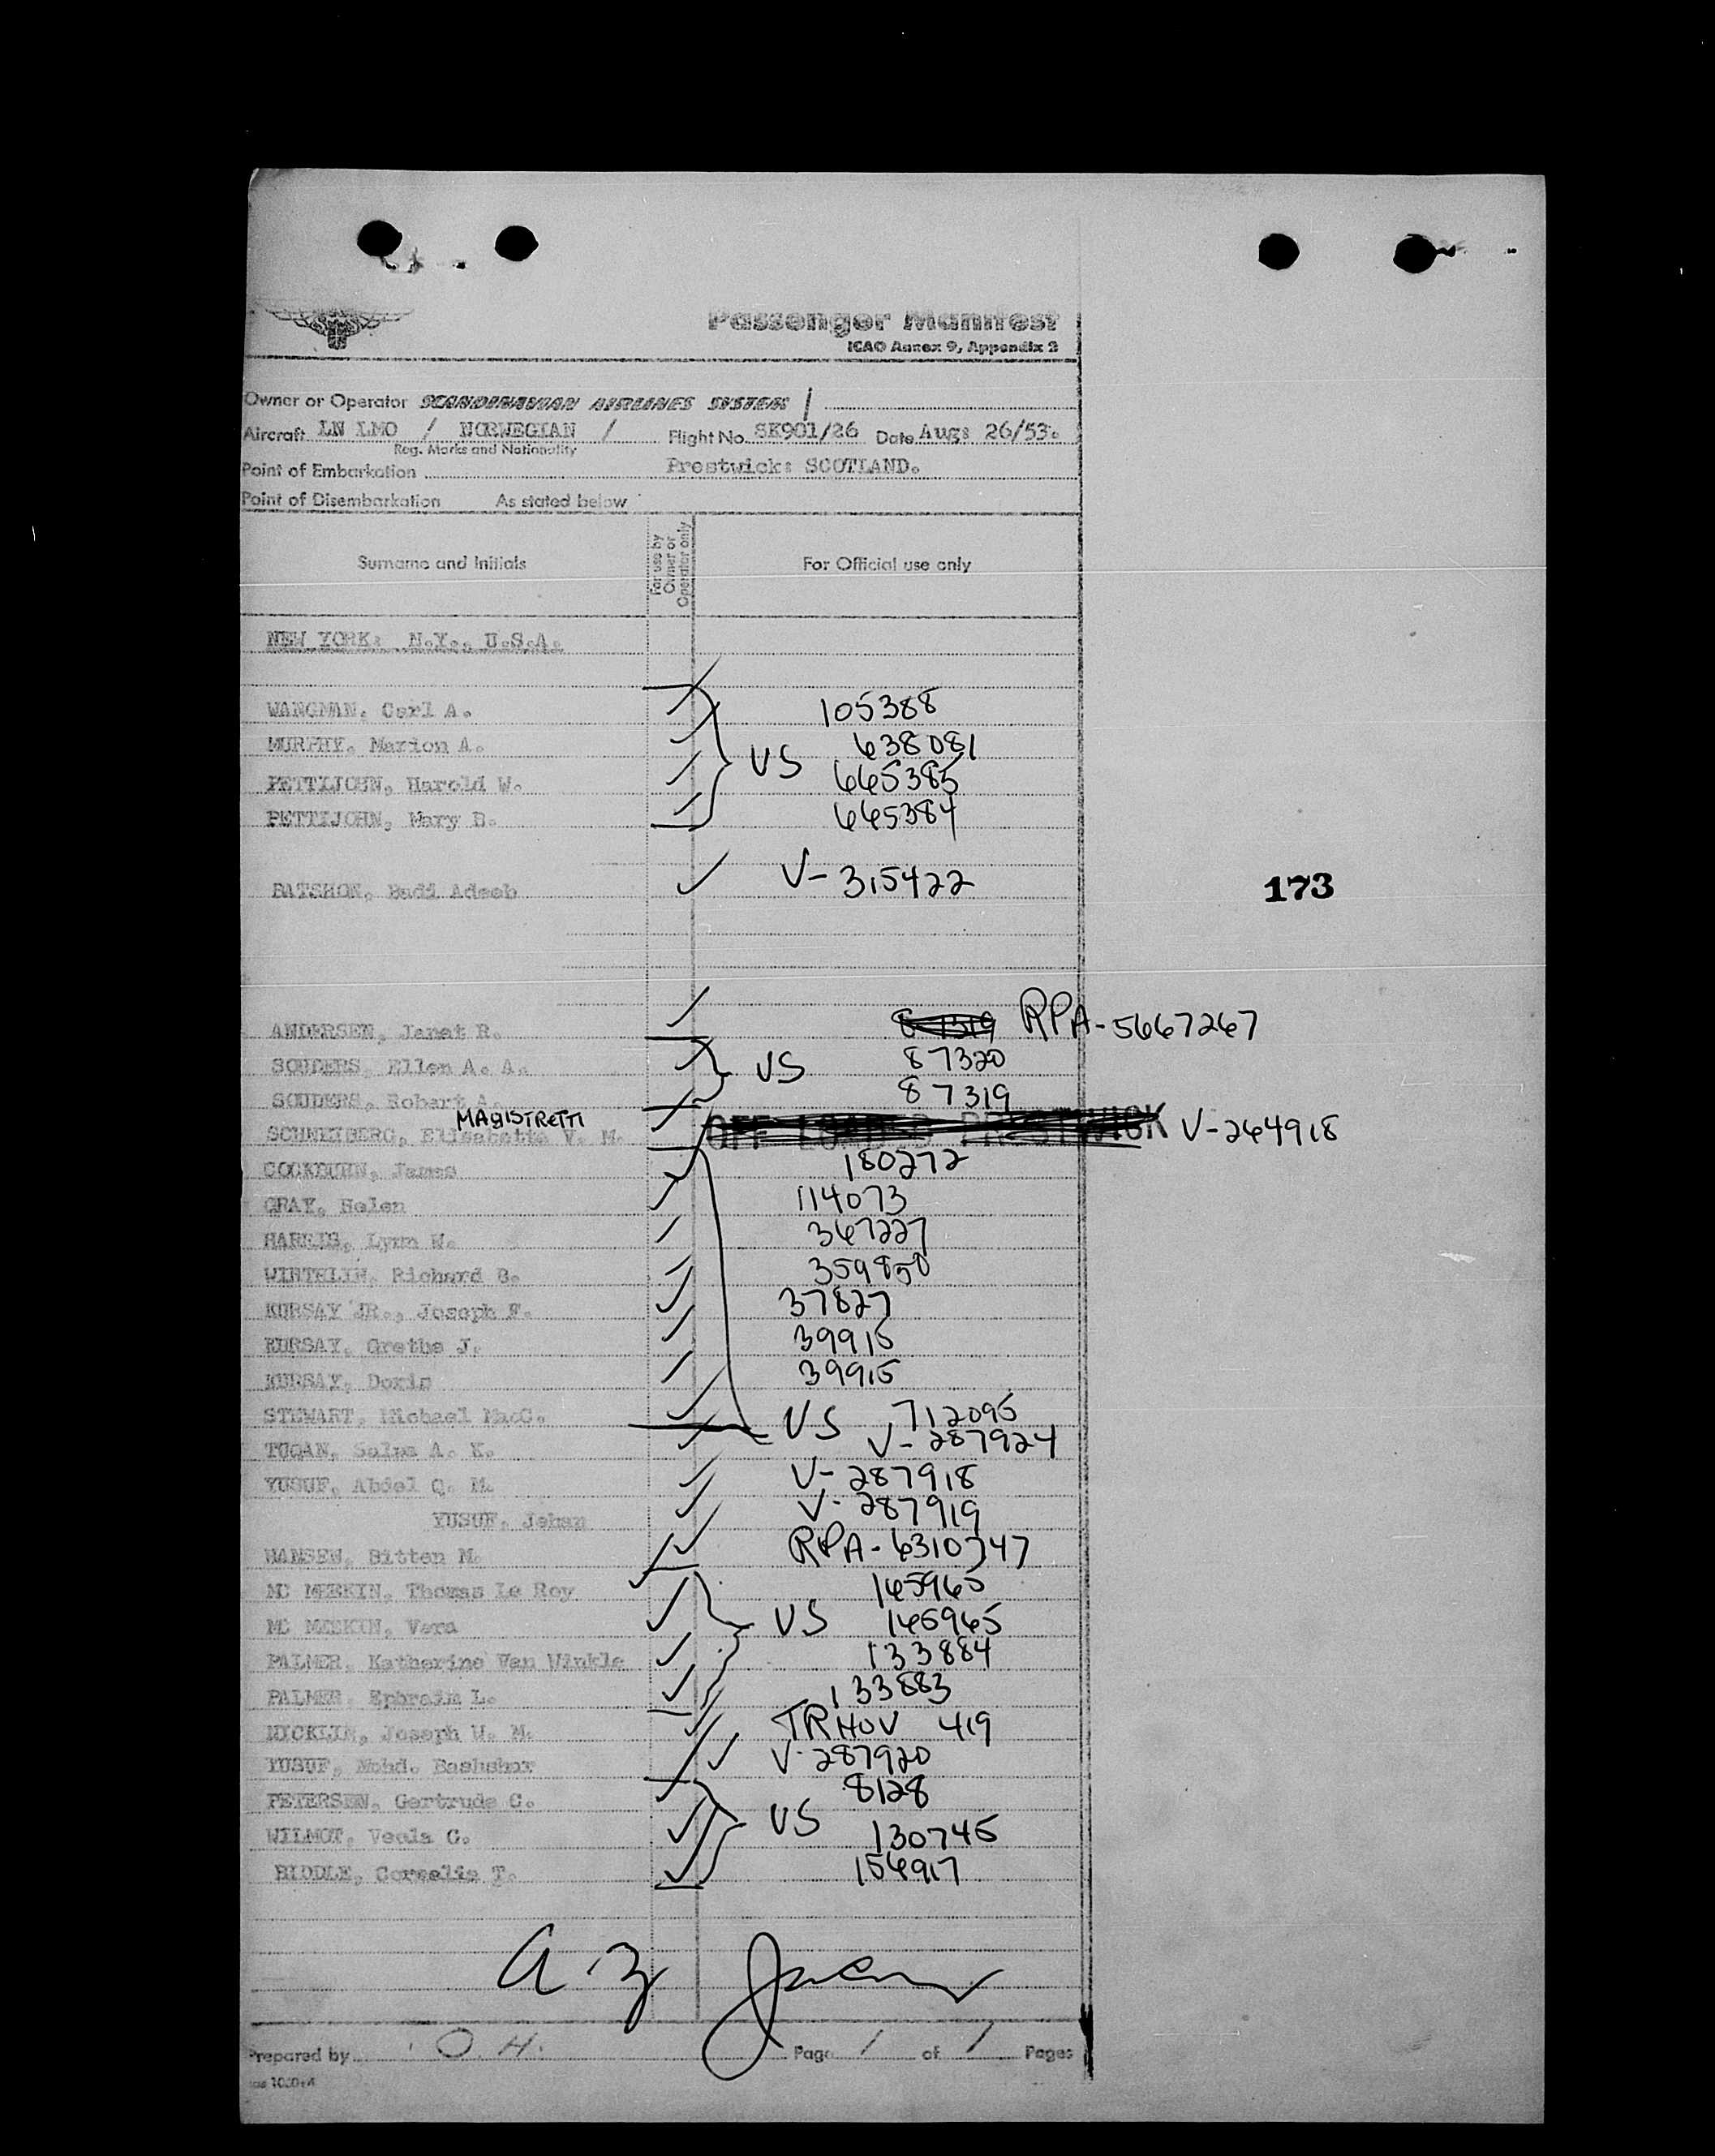 Passenger Manifest
ICAO Annex 9, Appendix 3
Owner or Operator SCANDINAVIAN AIRLINES SYSTEM
Aircraft LN LMO / NORWEGIAN / Flight No. SK901/26 Date Aug: 26/53.
Reg. Marks and Nationality
Point of Embarkation Prestwick: SCOTLAND.
Point of Disembarkation As stated below
Surname and Initials For use by Owner or Operator only For Official use only
NEW YORK: N.Y., U.S.A.
WANGMAN, Carl A. 105388
MURPHY, Marion A. US 638081
PETTIJOHN, Harold W. 665385
PETTIJOHN, Mary B. 665384
BATSHON, Badi Adeeb V-315422
173
ANDERSEN, Janet R. 87319 RPA-5667267
SOUDERS, Ellen A. A. US 87320
SOUDERS, Robert A. 87319
MAGISTRETTI
SCHNEIBERG, Elisabetta V. M. OFF LOADED PRESTWICK V-264918
COCKBURN, James 180272
GRAY, Helen 114073
HARRIS, Lynn W. 367227
WINTELIN, Richard S. 359850
KURSAY JR., Joseph F. 37827
KURSAY, Grethe J. 39915
KURSAY, Doris 39915
STEWART, Michael MacG. US 712095
TUQAN, Salma A. K. V-287924
YUSUF, Abdel Q. M. V-287918
YUSUF, Jehan V-287919
HANSEN, Bitten M. RPA-6310747
MC MEEKIN, Thomas Le Roy 165965
MC MEEKIN, Vera US 165965
PALMER, Katherine Van Winkle 133884
PALMER, Ephraim L. 133883
MICKLIN, Joseph W. M. TRHOV 419
YUSUF, Mohd. Bashshar V-287920
PETERSEN, Gertrude C. 8128
WILMOT, Veola G. US 130745
BIDDLE, Cornelia T. 156917
A. Z.
Prepared by O.H. Page 1 of 1 Pages